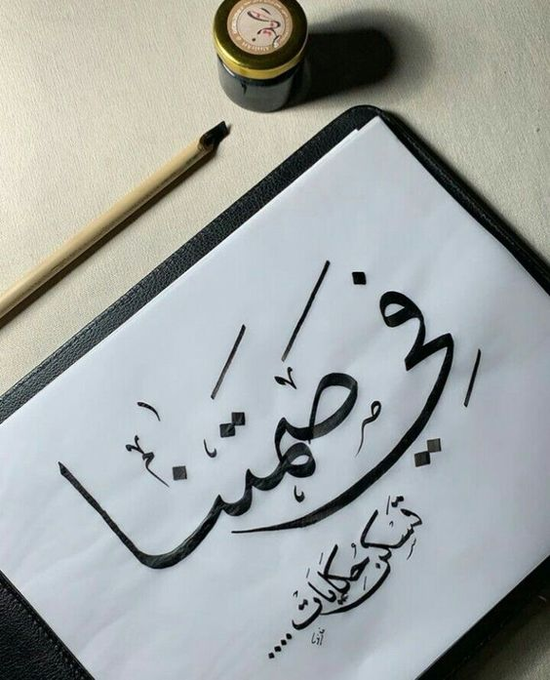 في صمتنا
تسكن حكايات....